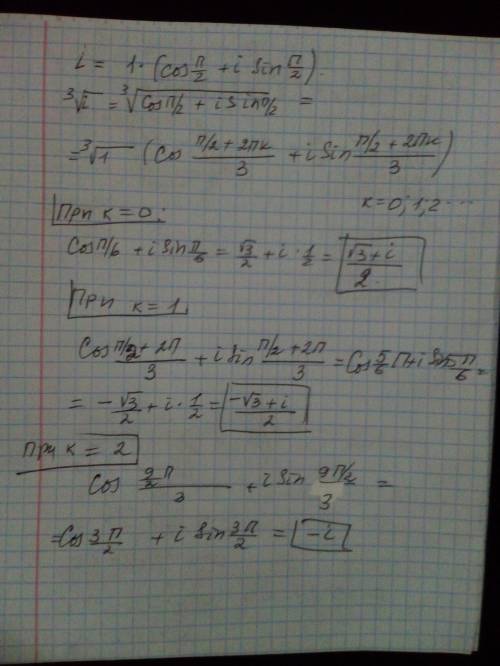 i = 1·(cos π/2 + i sin π/2).
³√i = ³√(cos π/2 + i sin π/2) =
= ³√1 (cos (π/2 + 2πк)/3 + i sin (π/2 + 2πк)/3)
к = 0; 1; 2 ...
При к = 0:
cos π/6 + i sin π/6 = √3/2 + i · 1/2 = (√3 + i)/2.
При к = 1
cos (π/2 + 2π)/3 + i sin (π/2 + 2π)/3 = cos 5/6 π + i sin 5π/6 =
= -√3/2 + i · 1/2 = (-√3 + i)/2
При к = 2
cos (9/2 π)/3 + i sin (9π/2)/3 =
= cos 3π/2 + i sin 3π/2 = -i